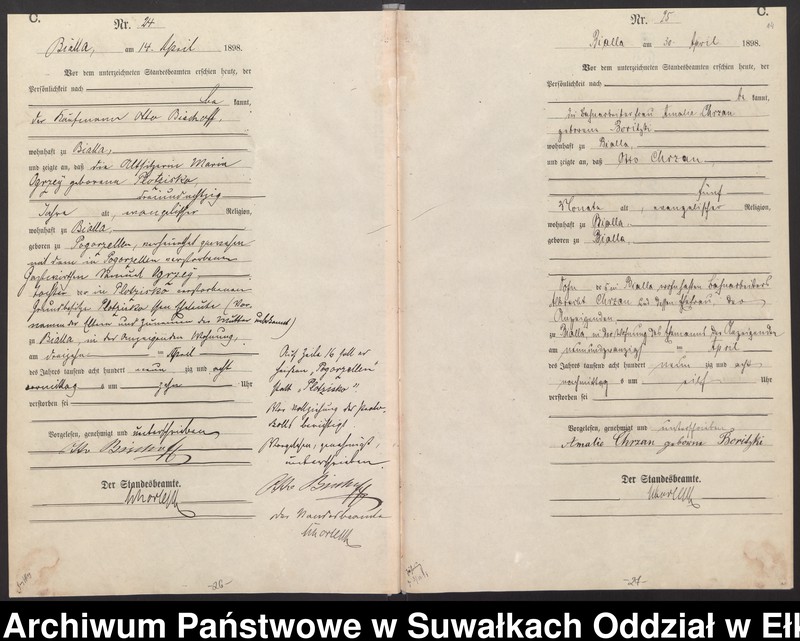 C.
Nr. 24
Bialla, am 14 April 1898.
Vor dem unterzeichneten Standesbeamten erschien heute, der
Persönlichkeit nach
be kannt,
der Kaufmann Otto Bischoff,
wohnhaft zu Bialla,
und zeigte an, daß die Altsitzerin Maria
Ogrzey geborene Plotzisko,
dreiundachtzig
Jahre alt, evangelischer Religion,
wohnhaft zu Bialla
geboren zu Pogorzellen, verheirathet gewesen
mit dem in Pogorzellen verstorbenen
Samuel Ogrzey
Tochter der in Plotzisko verstorbenen
Grundbesitzer Plotzisko'schen Eheleute (Vor-
namen der Eltern und Zunamen der Mutter unbekannt)
zu Bialla, in des Anzeigenden Wohnung,
am dreizehnten April
des Jahres tausend acht hundert neun zig und acht
vormittag s um zehn Uhr
verstorben sei
Vorgelesen, genehmigt und unterschrieben
Otto Bischoff
Der Standesbeamte.
Auf Zeile 16 soll es
heißen "Pogorzellen"
statt "Plotzisko"
Vor Vollziehung des Proto-
kolls berichtigt.
Vorgelesen, genehmigt,
unterschrieben
Otto Bischoff
Der Standesbeamte
-26-
C.
Nr. 25
Bialla am 30 April 1898.
Vor dem unterzeichneten Standesbeamten erschien heute, der
Persönlichkeit nach
be kannt,
die Bahnarbeiterfrau Amalie Chrzan
geborene Boritzki
wohnhaft zu Bialla,
und zeigte an, daß Otto Chrzan
fünf
Monate alt, evangelischer Religion,
wohnhaft zu Bialla
geboren zu Bialla,
Sohn des in Bialla wohnhaften Bahnarbeiters
Chrzan und dessen Ehefrau, der
Anzeigenden
zu Bialla, in der Wohnung des Ehemanns der Anzeigenden
am neunundzwanzigsten April
des Jahres tausend acht hundert neun zig und acht
nachmittag s um elf Uhr
verstorben sei
Vorgelesen, genehmigt und unterschrieben
Amalie Chrzan geborene Boritzki
Der Standesbeamte.
-27-
Archiwum Państwowe w Suwałkach Oddział w Eł